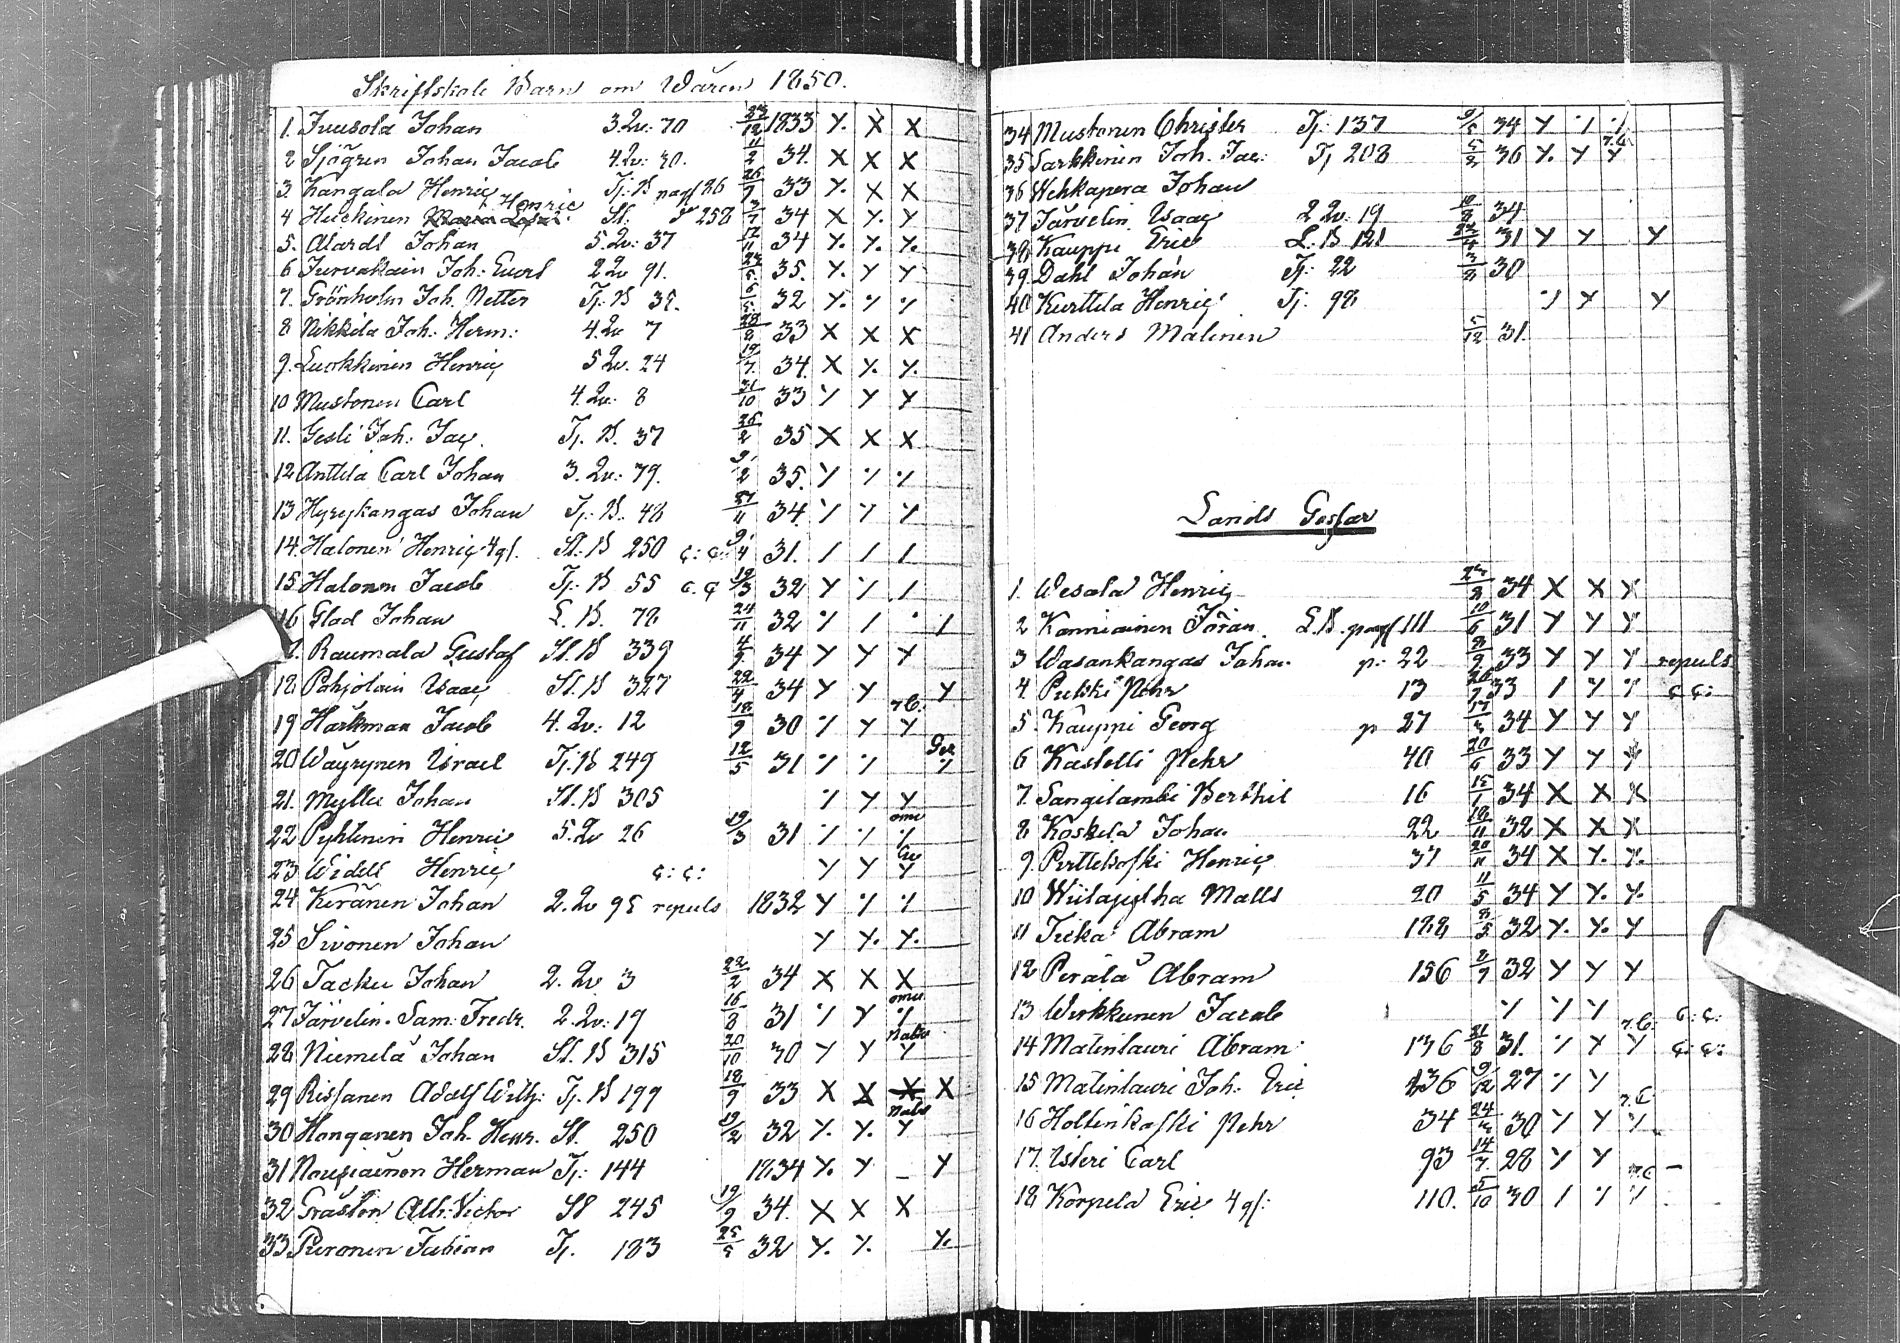 Skriftskole Barn om Våren 1850.
1. Juusola Johan 3.Qv: 70 23/12 1833 Y. X X
2 Sjögren Johan Jacob 4.Qv: 30. 11/2 34. X X X
3. Kangala Henric Tj: B pag 26 26/9 33 Y. X X
4 Heickinen Henric St. 258 3/7 34 X Y. Y
5. Alardt Johan 5.Qv: 37 12/11 34 Y. Y. Y.
6 Jurvakain Joh: Evert 2 Qv 91. 35. Y. Y Y
7. Grönholm Joh. Petter Tj: B 32 Y. Y Y
8 Nikkilä Joh: Herm: 4.Qv 7 28/8 33 X X X
9. Luokkinen Henric 5 Qv. 24 19/7 34 X Y. Y.
10 Mustonen Carl 4.Qv: 8 31/10 33 Y Y Y
11. Joh: Jac. Tj. B. 37 26/2 35 X X X
12 Anttila Carl Johan 3. Qv: 79. 9/2 35. Y Y Y
13 Hyrykangas Johan Tj. B. 48 27/11 34 Y Y Y
14. Halonen Henric 4 gl. St: B 250 c: c: 9/4 31. / / /
15. Halonen Jacob Tj: B 55 c. c 19/3 32 Y Y /
16 Glad Johan L. B. 72 24/11 32 Y / /
Raumala Gustaf St. B 339 4/9 34 Y Y Y
18 Pohjolain Isaac St. B 327 22/4 34 Y Y Y
19 Harkman Jacob 4. Qv: 12 18/9 30 Y Y Y
20 Wäyrynen Israel Tj. B 249 12/5 31 Y Y Y
21. Myllu Johan St. B 305 Y Y Y
22 Pyhtinen Henric 5. Qv 26 19/3 31 Y Y Y
23 Henric c: c: Y Y Y
24 Keränen Johan 2. Qv 95 repuls 1832 Y Y Y
25 Sivonen Johan Y Y. Y.
26 Tacku Johan 2. Qv 3 22/2 34 X X X
27 Järvelin. Sam: Fredr. 2. Qv: 19 16/8 31 Y Y Y
28 Niemelä Johan St. B 315 20/10 30 Y Y Y
29 Rissanen Adolf Wilh: Tj. B 199 18/9 33 X X X X
30 Honganen Joh. Henr. St. 250 19/2 32 Y. Y. Y
31 Herman Tj: 144 1834 Y. Y – Y
32 Alb: Victor St 245 19/9 34. X X X
33 Fabian Tj. 183 25/5 32 Y. Y. Y.
34 Mustonen Christer Tj: 137 34 Y Y Y
35 Sarkkinen Joh. Jac: Tj 208 36 Y. Y Y
36 Wehkapera Johan
37 Järvelin Isaac 2 Qv: 19 34
38 Kauppi Eric L: B 121 31 Y Y Y
39 Dahl Johan Tj: 22 3/2 30
40 Kurttila Henric Tj. 98 Y Y Y
41 Anders Malinen 5/12 31.
Lands Gossar
1. Wesala Henric 34 X X Y
2 Kanniainen Jöran L.B. pag 111 10/6 31 Y Y Y
3 Wasankangas Johan p: 22 33 Y Y Y repuls
4. Pehr 13 33 / Y Y c c:
5. Kauppi Georg p 27 34 Y Y Y
6 Kastelli Pehr 40 20/6 33 Y Y Y
7. Sangilambi Berthil 16 15/1 34 X X X
8 Koskela Johan 22 18/11 32 X X X
9. Pirttikoski Henric 37 20/11 34 X Y. Y.
10 Wiitajylha Matts 20 11/5 34 Y Y. Y.
11 Abram 188 32 Y. Y. Y
12 Perälä Abram 156 32 Y Y Y
13 Wirkkunen Jacob Y Y Y c: c:
14 Matinlauri Abram 136 21/8 31. Y Y Y c: c:
15 Matinlauri Joh: Eric 136 9/12 27 Y Y
16 Holtinkoski Pehr 34 30 Y Y Y
17. Carl 93 14/7 28 Y Y –
18 Korpela Eric 4 gl: 110. 5/10 30 / Y Y